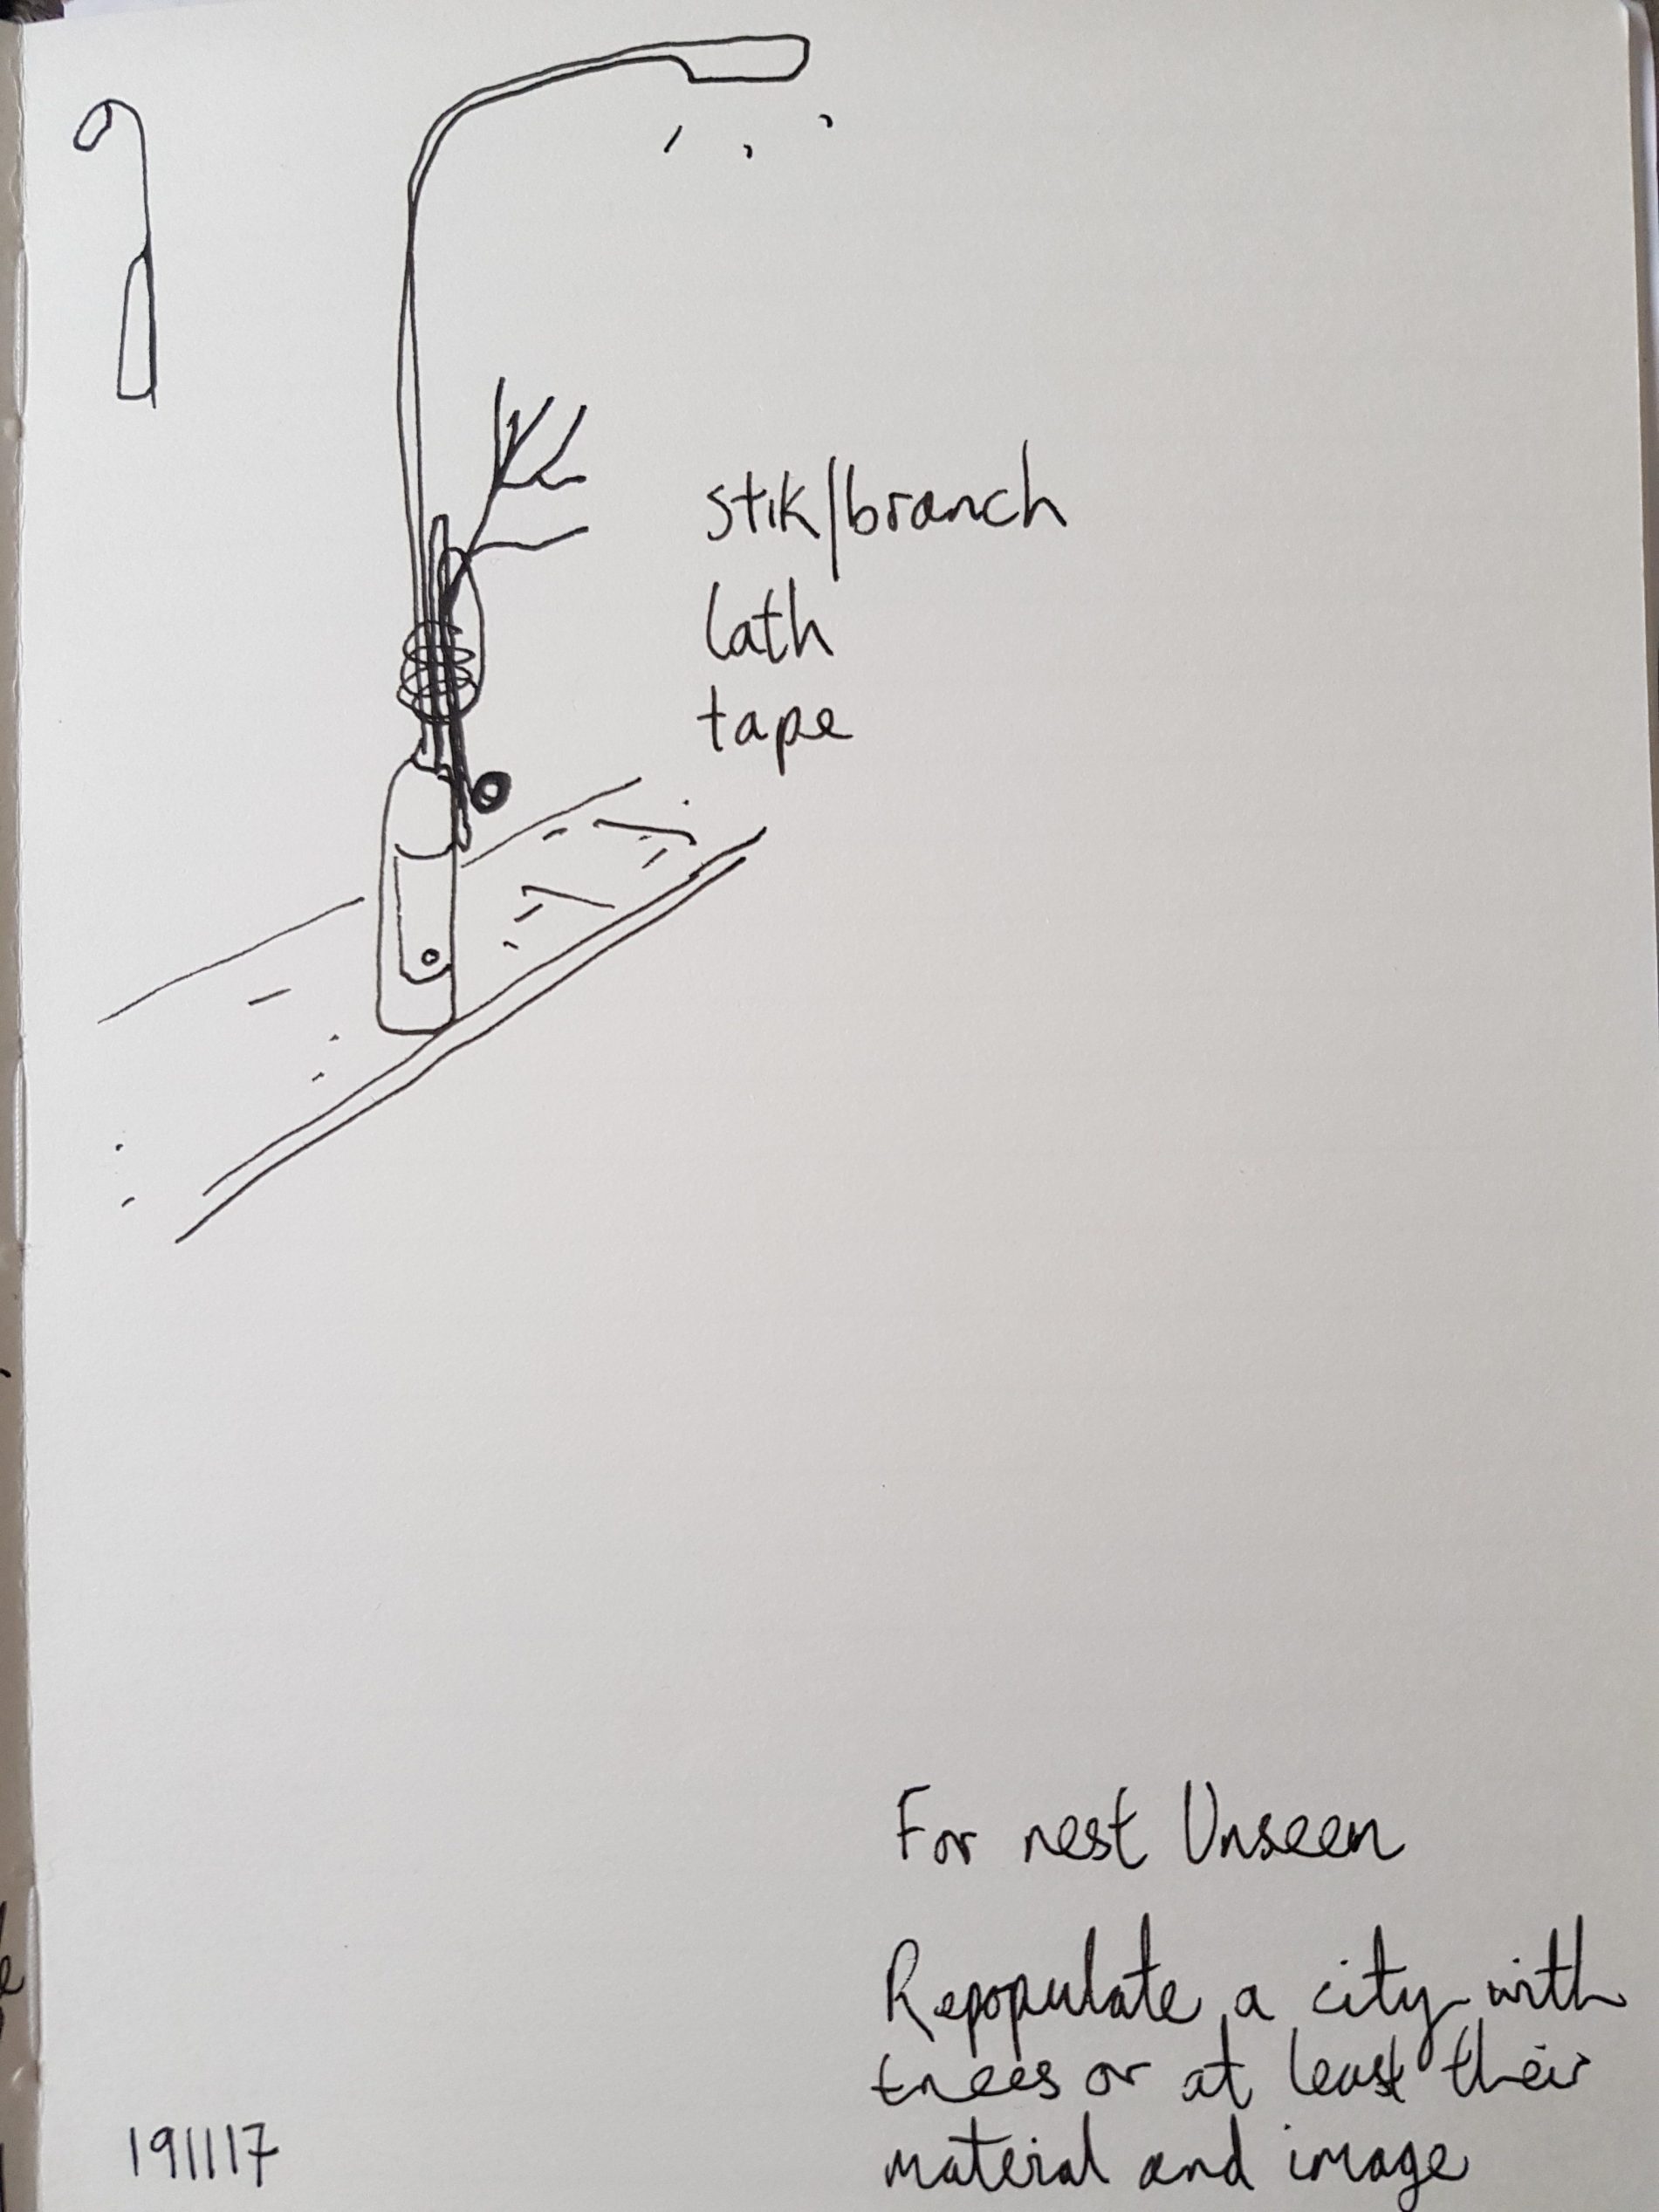 stik/branch
lath
tape
For nest Unseen
Repopulate a city with
trees or at least their
material and image
191117